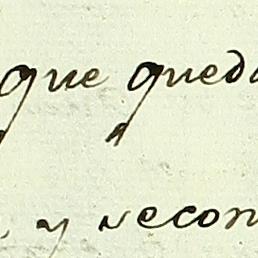 que queda
, y recon